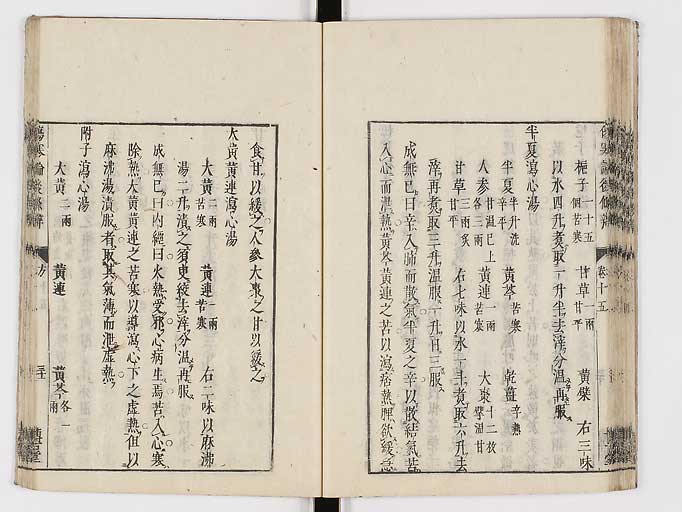 梔子一十五個苦寒 甘草一兩甘平 黃蘗 右三味
以水四升煮取一升半去滓分温再服
半夏瀉心湯
半夏半升洗辛平 黃芩苦寒 乾薑辛熱
甘温已上
人参各三兩 黃連一兩苦寒 大棗十二枚擘温甘
甘草三兩炙甘平 右七味以水一斗煮取六升去
滓再煮取三升温服一升日三服
成無已曰辛入肺而散氣半夏之辛以散結氣苦
入心而泄熱黃芩黃連之苦以瀉痞熱脾欲緩急
食甘以緩之人参大棗之甘以緩之
大黃黃連瀉心湯
大黃二兩苦寒 黃連一兩苦寒 右二味以麻沸
湯二升漬之須臾絞去滓分温再服
成無已曰内經曰火熱受邪心病生焉苦入心寒
除熱大黃黃連之苦寒以導瀉心下之虛熱但以
麻沸湯漬服者取其氣薄而泄虛熱
附子瀉心湯
大黃二兩 黃連 黃芩各一兩
卷十五
傷寒論後條辨
方